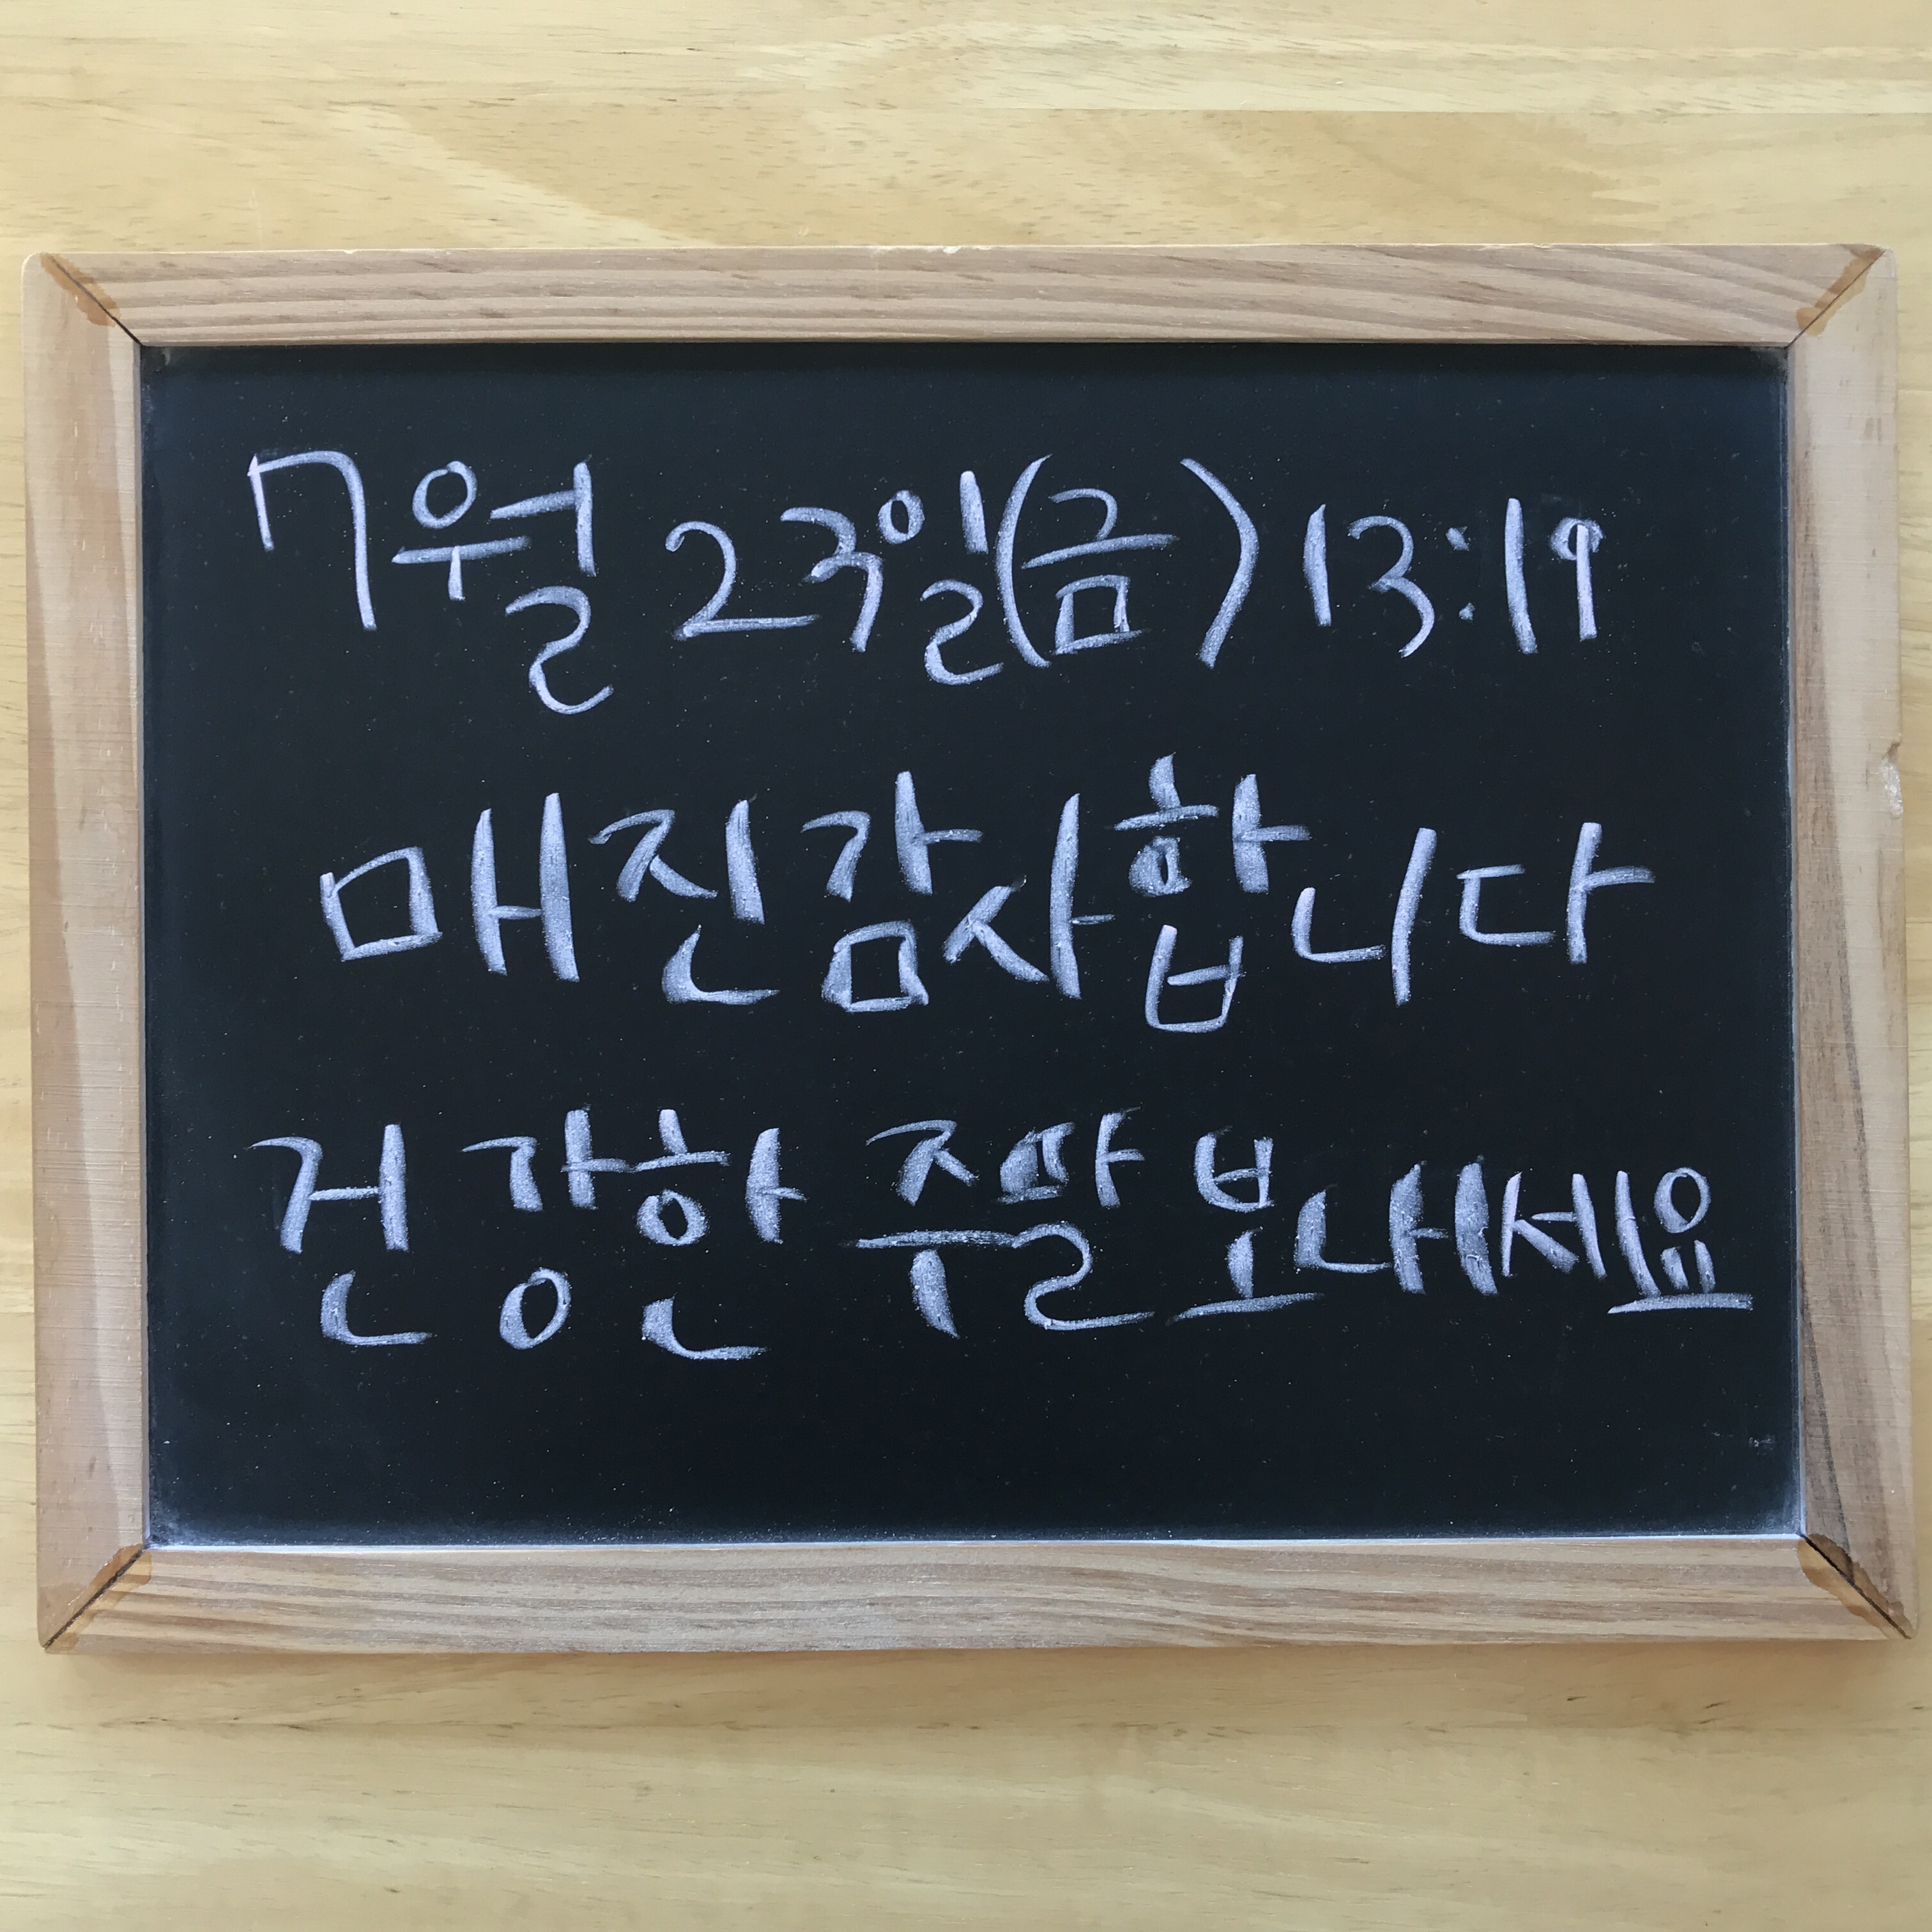 7월 23일(금) 13:19
매진감사합니다
건강한 주말 보내세요